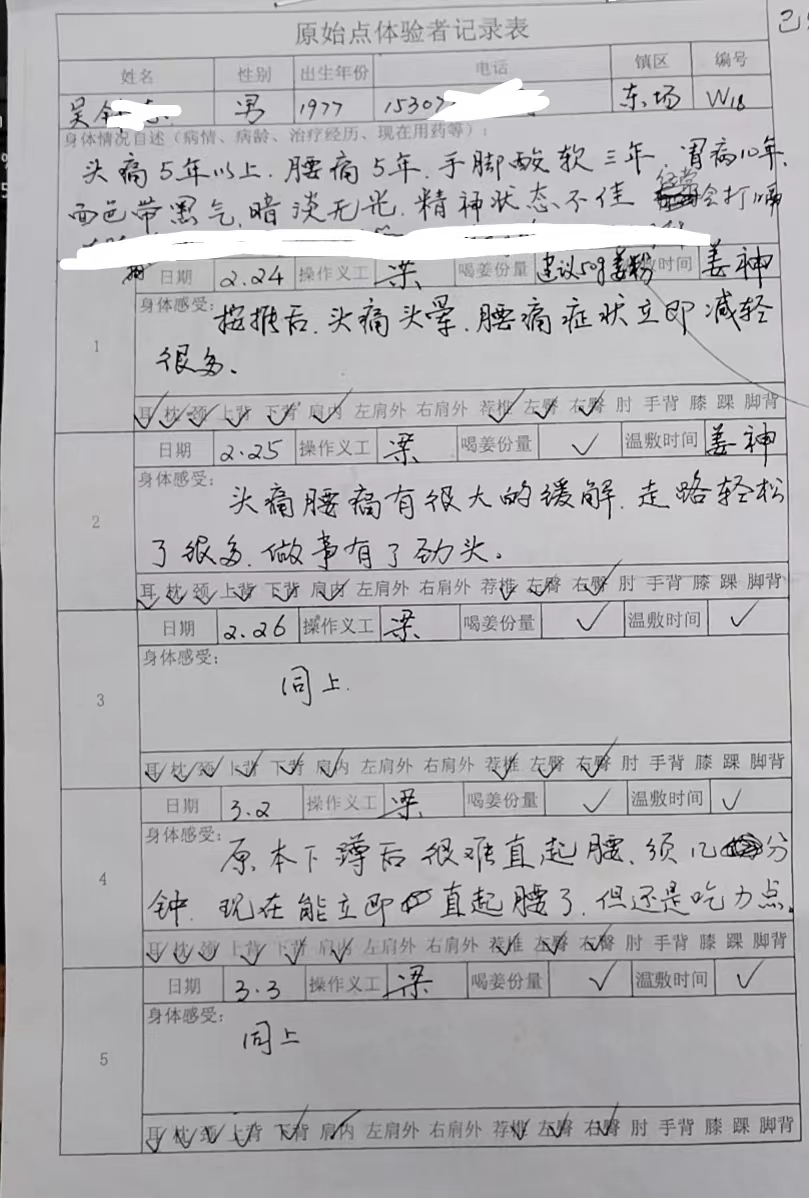 原始点体验者记录表
姓名 性别 出生年份 电话 镇区 编号
吴 男 1977 15307 东场 W18
身体情况自述（病情、病龄、治疗经历、现在用药等）：
头痛5年以上.腰痛5年.手脚酸软三年.胃病10年.
面色带黑气.暗淡无光.精神状态不佳 经常会打嗝
日期 2.24 操作义工 梁 喝姜份量 建议50g姜粉 时间 姜神
1
身体感受：
按推后.头痛头晕.腰痛症状立即减轻
很多.
耳 枕 颈 上背 下背 肩内 左肩外 右肩外 荐椎 左臀 右臀 肘 手背 膝 踝 脚背
日期 2.25 操作义工 梁 喝姜份量 ✓ 温敷时间 姜神
2
身体感受：
头痛腰痛有很大的缓解.走路轻松
了很多.做事有了劲头。
耳 枕 颈 上背 下背 肩内 左肩外 右肩外 荐椎 左臀 右臀 肘 手背 膝 踝 脚背
日期 2.26 操作义工 梁 喝姜份量 ✓ 温敷时间 ✓
3
身体感受：
同上.
耳 枕 颈 上背 下背 肩内 左肩外 右肩外 荐椎 左臀 右臀 肘 手背 膝 踝 脚背
日期 3.2 操作义工 梁 喝姜份量 ✓ 温敷时间 ✓
4
身体感受：
原本下蹲后很难直起腰.须几分
钟.现在能立即直起腰了.但还是吃力点.
耳 枕 颈 上背 下背 肩内 左肩外 右肩外 荐椎 左臀 右臀 肘 手背 膝 踝 脚背
日期 3.3 操作义工 梁 喝姜份量 ✓ 温敷时间 ✓
5
身体感受：
同上
耳 枕 颈 上背 下背 肩内 左肩外 右肩外 荐椎 左臀 右臀 肘 手背 膝 踝 脚背